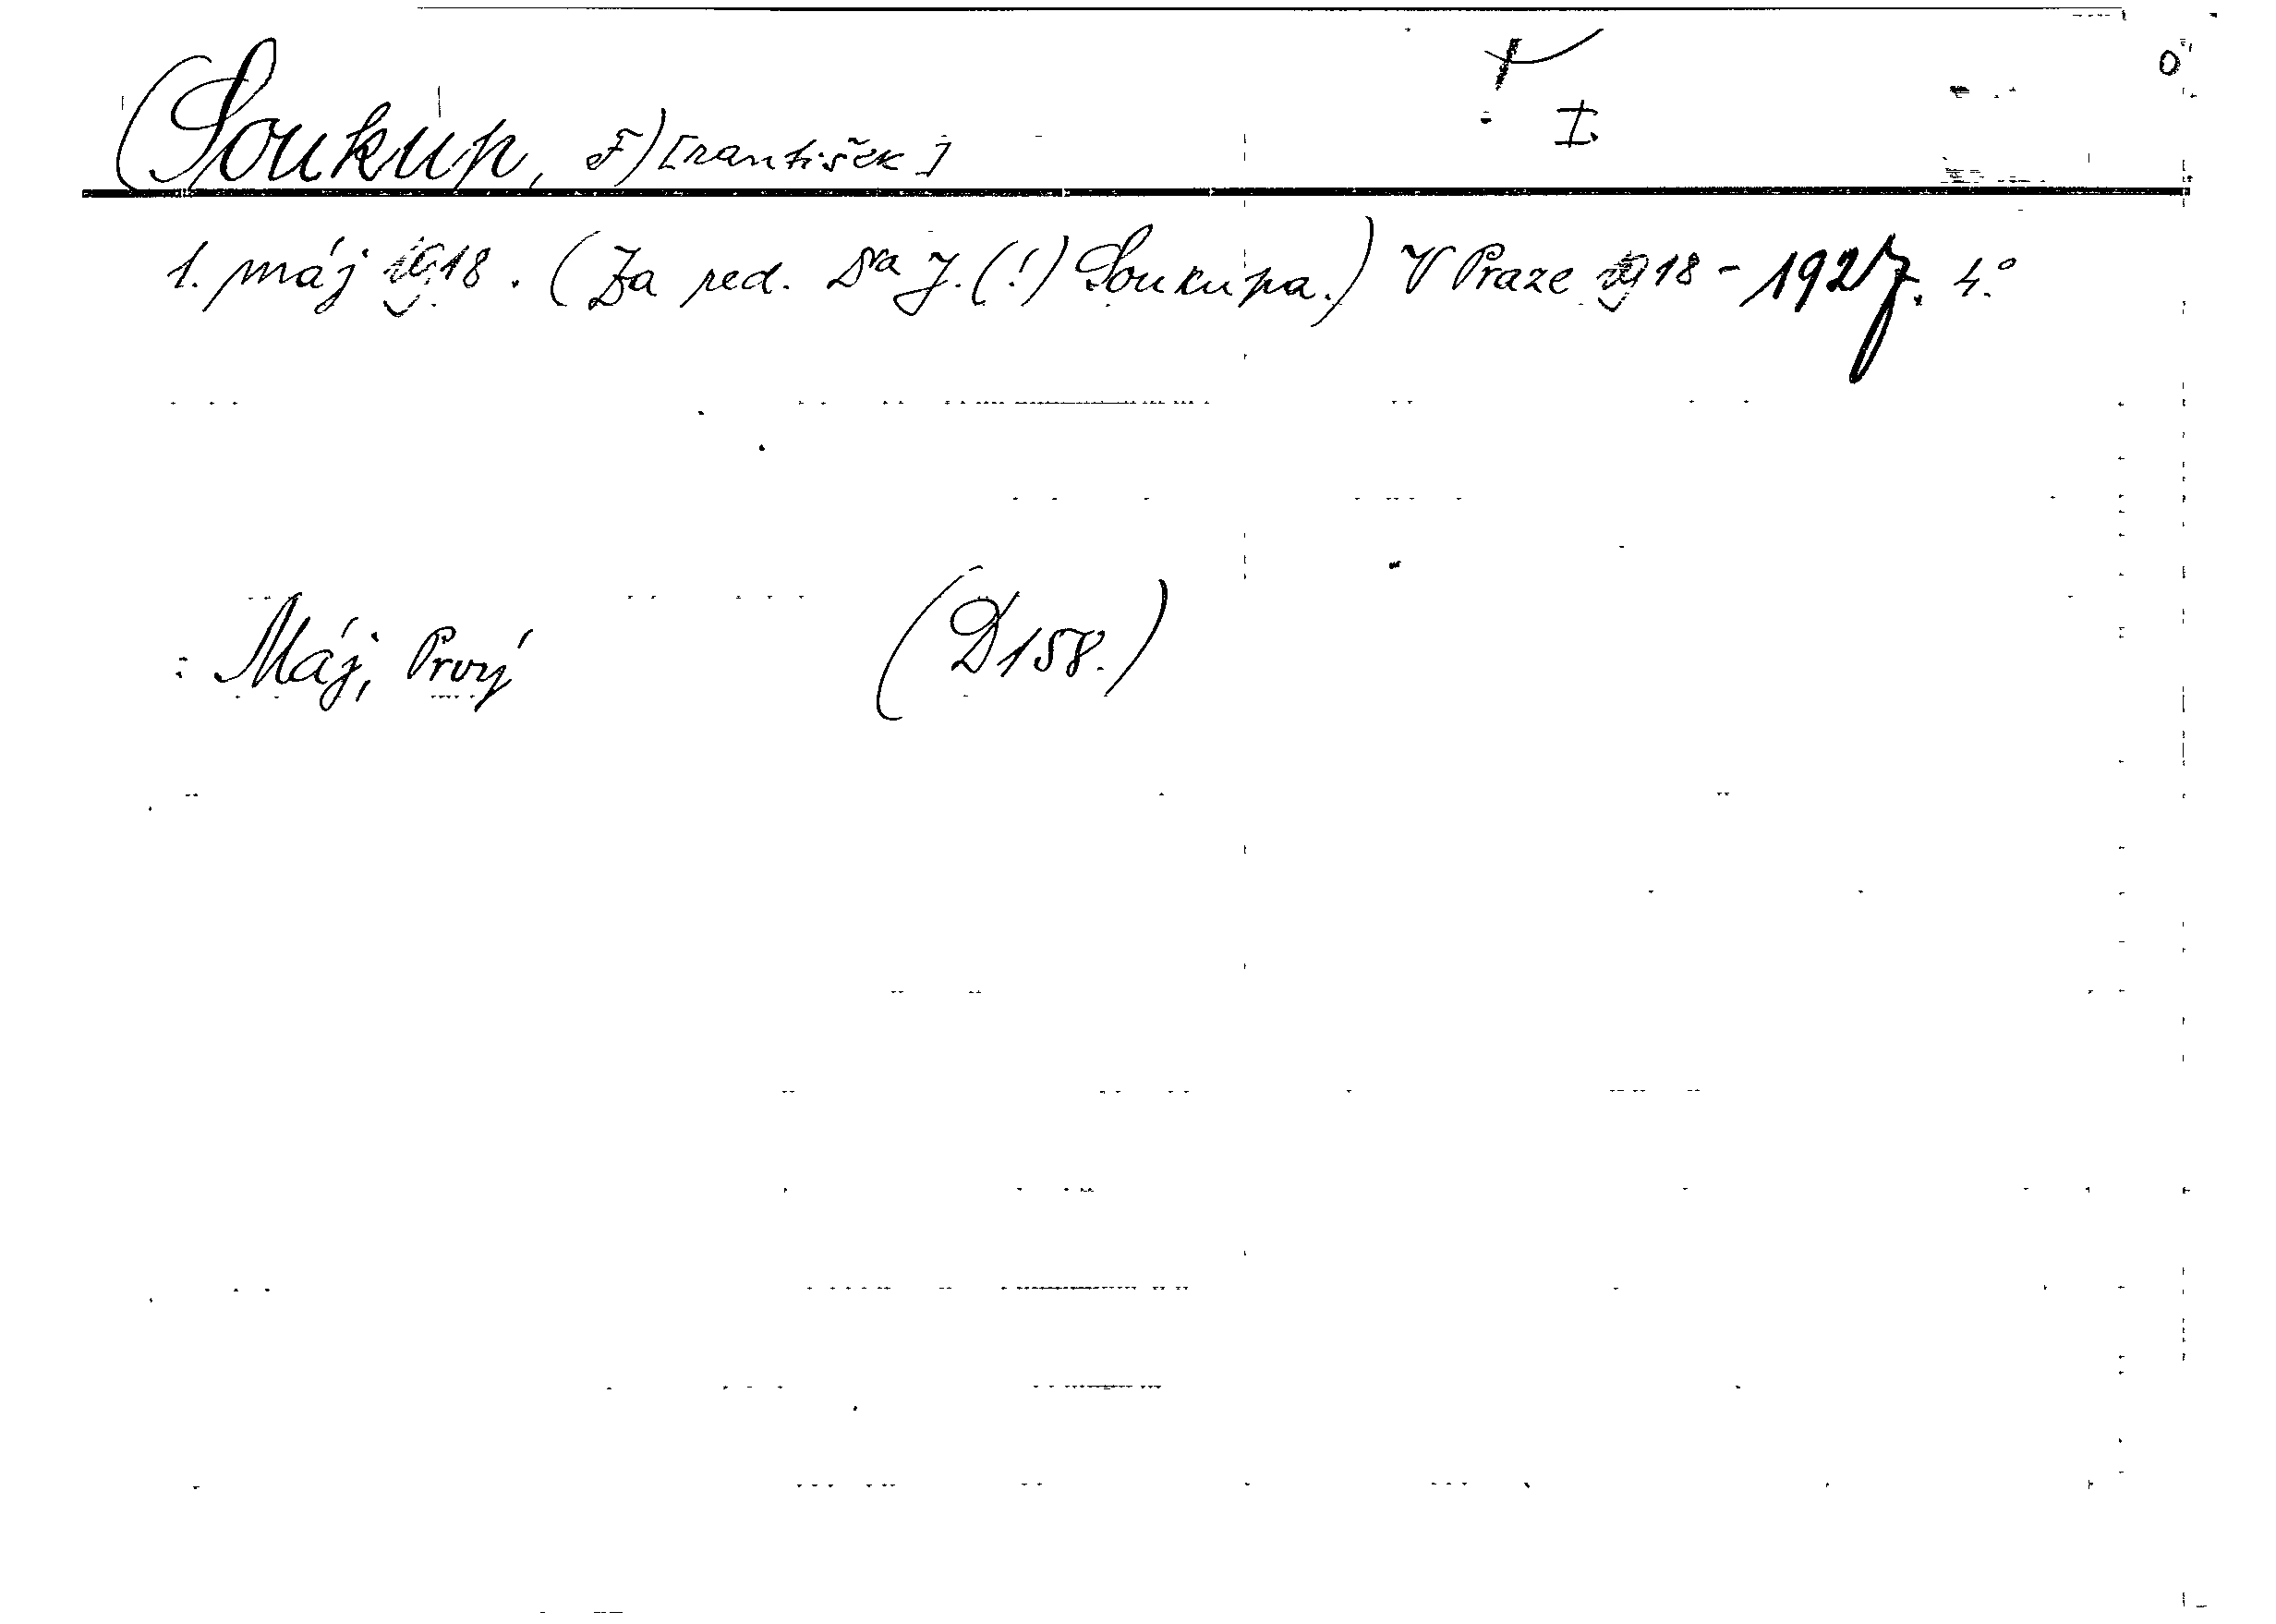 I
(Soukup, F)[rantišek]
1. máj 1918. (Za red. Dra J. (!) Soukupa.) V Praze 1918 - 1927. 4.°
: Máj, Prvý (D158.)